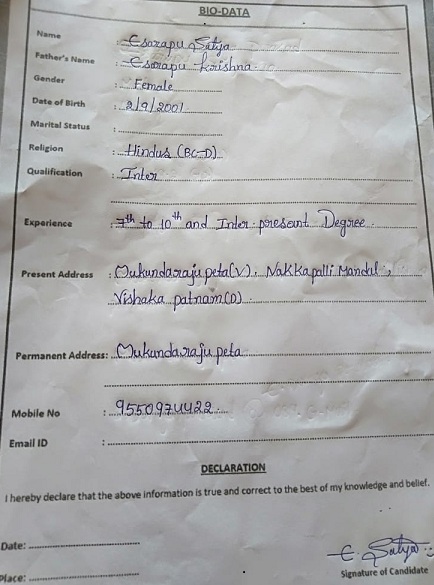 BIO-DATA
Name : Esarapu Satya
Father's Name : Esarapu krishna
Gender : Female
Date of Birth : 2/9/2001
Marital Status :
Religion : Hindus (BC-D)
Qualification : Inter
Experience : 7th to 10th and Inter present Degree
Present Address : Mukundarajupeta(V), Nakkapalli Mandal,
Vishaka patnam(D)
Permanent Address: Mukundarajupeta
Mobile No : 9550974422
Email ID :
DECLARATION
I hereby declare that the above information is true and correct to the best of my knowledge and belief.
Date:
E. Satya
Place:
Signature of Candidate